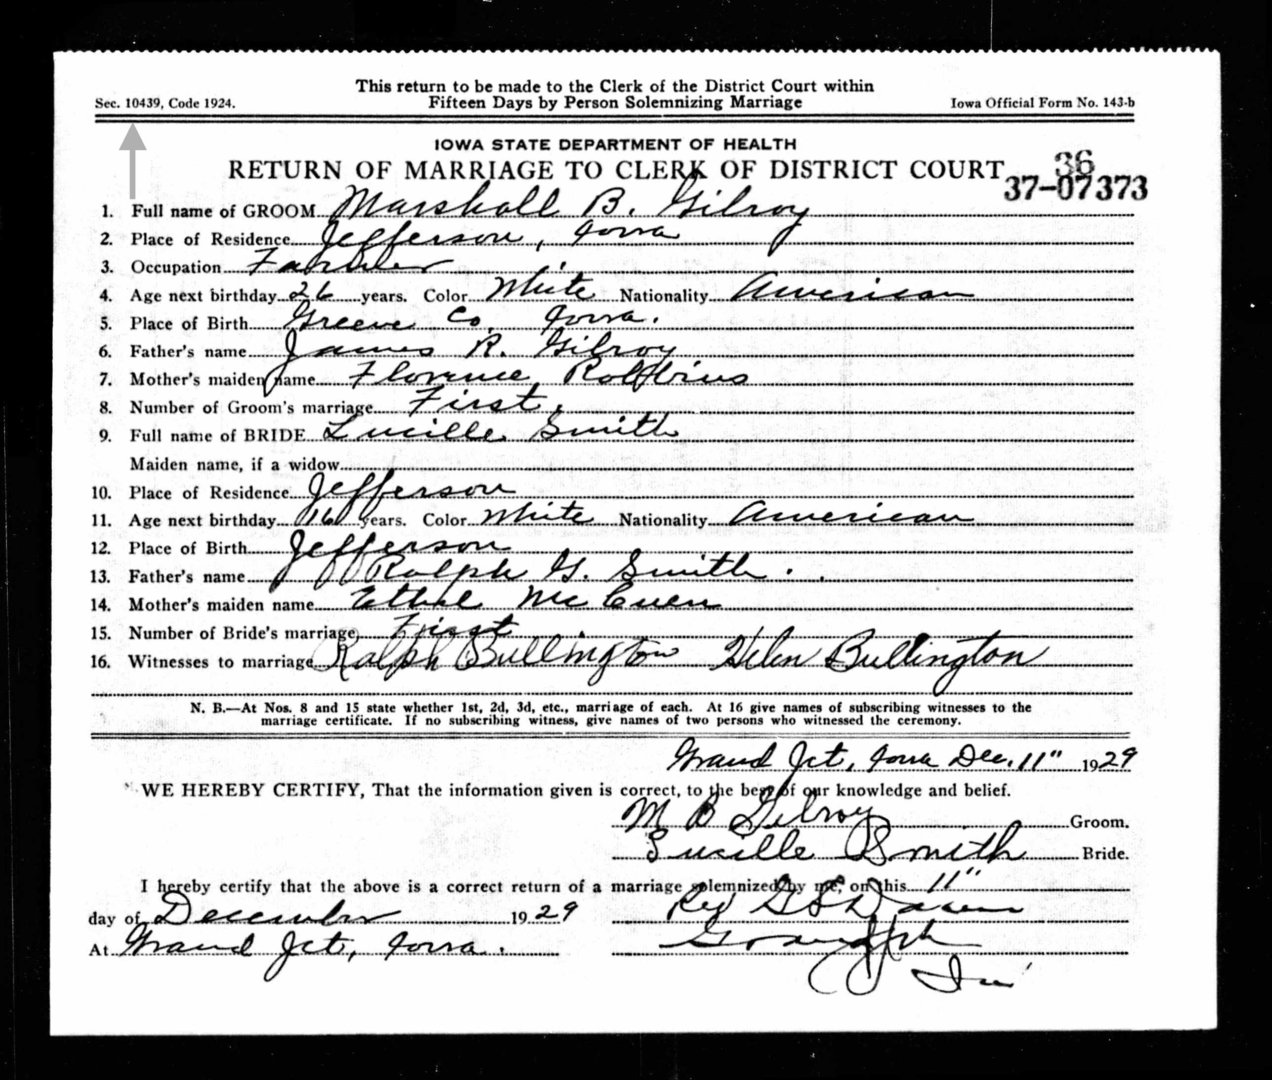 This return to be made to the Clerk of the District Court within
Sec. 10439, Code 1924. Fifteen Days by Person Solemnizing Marriage Iowa Official Form No. 143-b
IOWA STATE DEPARTMENT OF HEALTH
RETURN OF MARRIAGE TO CLERK OF DISTRICT COURT
36
37-07373
1. Full name of GROOM Marshall B. Gilroy
2. Place of Residence Jefferson, Iowa
3. Occupation Farmer
4. Age next birthday 26 years. Color White Nationality American
5. Place of Birth Greene Co, Iowa.
6. Father's name James R. Gilroy
7. Mother's maiden name Florence Robbins
8. Number of Groom's marriage First,
9. Full name of BRIDE Lucille Smith
Maiden name, if a widow
10. Place of Residence Jefferson
11. Age next birthday 16 years. Color White Nationality American
12. Place of Birth Jefferson
13. Father's name Ralph G. Smith.
14. Mother's maiden name Ethel McCuen
15. Number of Bride's marriage First
16. Witnesses to marriage Ralph Bullington Helen Bullington
N. B.—At Nos. 8 and 15 state whether 1st, 2d, 3d, etc., marriage of each. At 16 give names of subscribing witnesses to the
marriage certificate. If no subscribing witness, give names of two persons who witnessed the ceremony.
Grand Jct, Iowa Dec. 11" 1929
WE HEREBY CERTIFY, That the information given is correct, to the best of our knowledge and belief.
M B Gilroy Groom.
Lucille Smith Bride.
I hereby certify that the above is a correct return of a marriage solemnized by me, on this 11"
day of December 1929 Rev G S
At Grand Jct, Iowa. Grand Jct